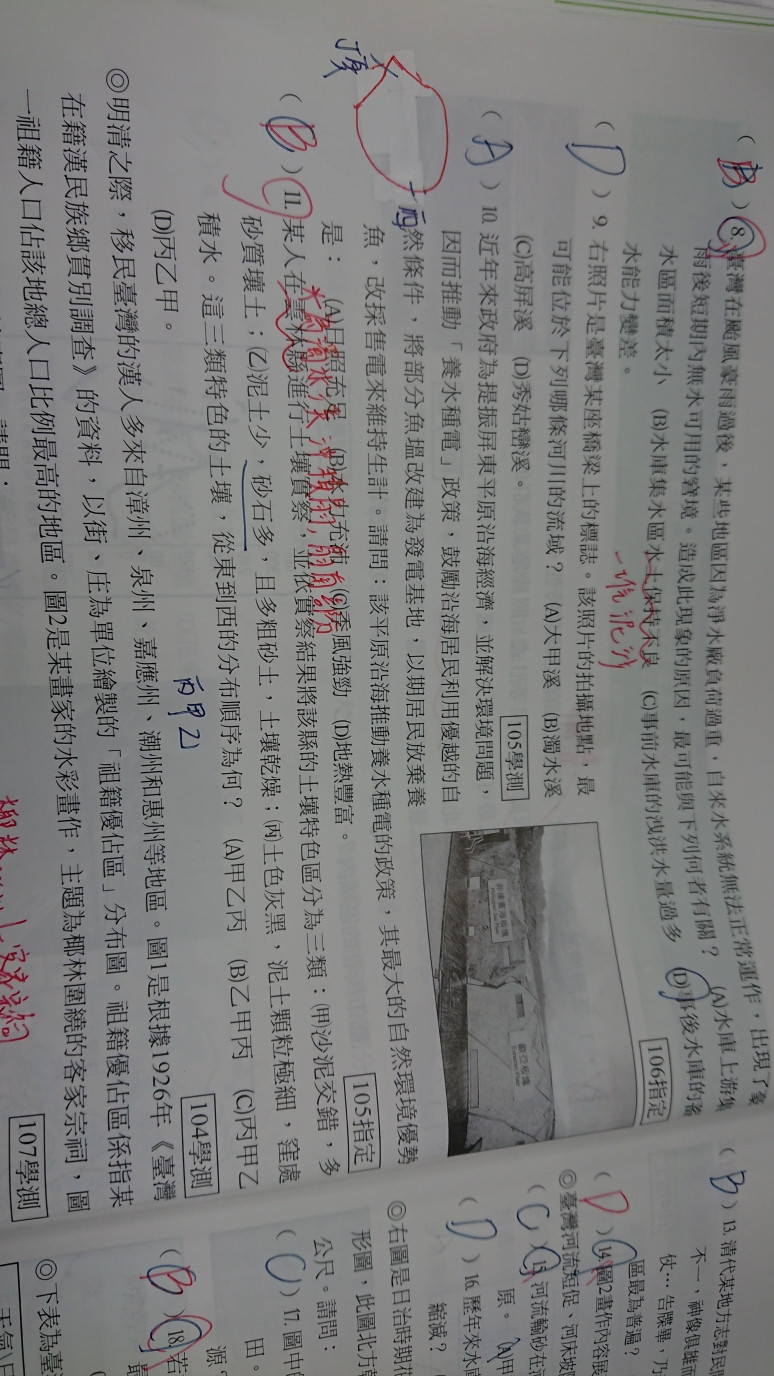 ( B ) 8. 臺灣在颱風豪雨過後，某些地區因為淨水廠負荷過重，自來水系統無法正常運作，出現了豪
雨後短期內無水可用的窘境。造成此現象的原因，最可能與下列何者有關？ (A)水庫上游集
水區面積太小 (B)水庫集水區水土保持不良 (C)事前水庫的洩洪水量過多 (D)事後水庫的蓄
水能力變差。
106指定
一堆泥沙
( D ) 9. 右照片是臺灣某座橋梁上的標誌。該照片的拍攝地點，最
可能位於下列哪條河川的流域？ (A)大甲溪 (B)濁水溪
(C)高屏溪 (D)秀姑巒溪。
105學測
( A ) 10. 近年來政府為提振屏東平原沿海經濟，並解決環境問題，
因而推動「養水種電」政策，鼓勵沿海居民利用優越的自
然條件，將部分魚塭改建為發電基地，以期居民放棄養
魚，改採售電來維持生計。請問：該平原沿海推動養水種電的政策，其最大的自然環境優勢
是： (A)日照充足 (B)水力充沛 (C)季風強勁 (D)地熱豐富。
105指定
頂
( B ) 11. 某人在雲林縣進行土壤實察，並依實察結果將該縣的土壤特色區分為三類：(甲)沙泥交錯，多
砂質壤土；(乙)泥土少，砂石多，且多粗砂土，土壤乾燥；(丙)土色灰黑，泥土顆粒極細，窪處
積水。這三類特色的土壤，從東到西的分布順序為何？ (A)甲乙丙 (B)乙甲丙 (C)丙甲乙
(D)丙乙甲。
104學測
丙甲乙
◎明清之際，移民臺灣的漢人多來自漳州、泉州、嘉應州、潮州和惠州等地區。圖1是根據1926年《臺灣
在籍漢民族鄉貫別調查》的資料，以街、庄為單位繪製的「祖籍優佔區」分布圖。祖籍優佔區係指某
一祖籍人口佔該地總人口比例最高的地區。圖2是某畫家的水彩畫作，主題為椰林圍繞的客家宗祠，圖
請問：
107學測
( B ) 13. 清代某地方志對民
不一，神像俱雄
仗…告牒畢，乃
( D ) 14. 圖2畫作內容展
區最為普遍？
◎臺灣河流短促、河床坡
( C ) 15. 河流輸砂在
原。 (A)甲
( D ) 16. 歷年來水庫
縮減？
◎右圖是日治時期花
形圖，此圖北方
公尺。請問：
( C ) 17. 圖中
田。
源
( B ) 18. 若
◎下表為臺